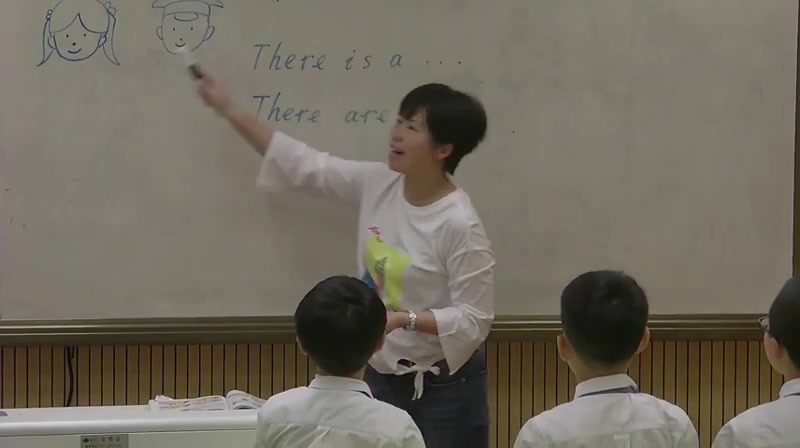 There is a ...
There are